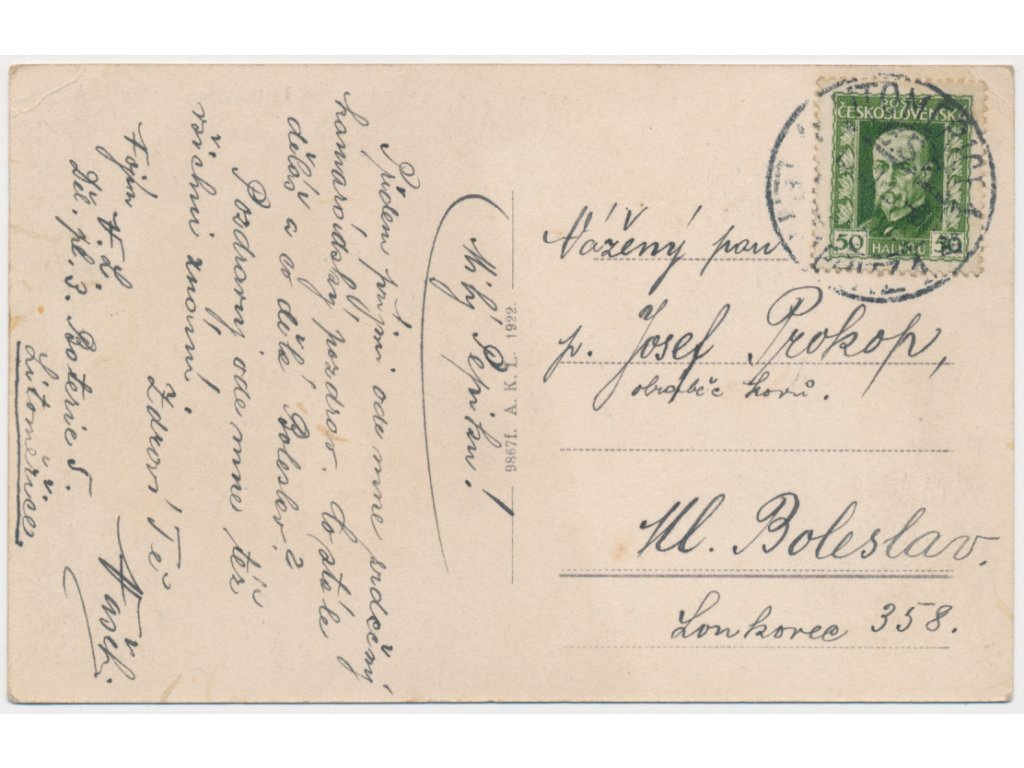 Milý Pepíku!
Předem přijmi ode mne srdečný
kamarádský pozdrav. Co stále
děláš a co dělá Boleslav?
Pozdravuj ode mne též
všechni známí.
Zdraví Tě
Vašek.
Vojín V. L.
Děl. pl. 3. Baterie 5.
Litoměřice.
9867f. A. K. L. 1922.
POŠTA
ČESKOSLOVENSKÁ
50 HALÉŘŮ 50
Vážený pan
p. Josef Prokop,
obraběč kovů.
Ml. Boleslav.
Lonkovec 358.